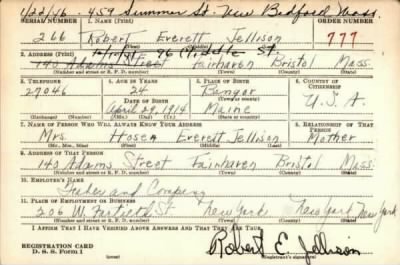 1/22/46 - 459 Summer St. New Bedford Mass.
SERIAL NUMBER 1. NAME (Print) ORDER NUMBER
266 Robert Everett Jellison 777
(First) (Middle) (Last)
2. ADDRESS (Print)
96 St.
140 Adams Street Fairhaven Bristol Mass.
(Number and street or R. F. D. number) (Town) (County) (State)
3. TELEPHONE 4. AGE IN YEARS 5. PLACE OF BIRTH 6. COUNTRY OF CITIZENSHIP
27046 24 Bangor U.S.A.
DATE OF BIRTH (Town or county)
April 29, 1914 Maine
(Exchange) (Number) (Mo.) (Day) (Yr.) (State or country)
7. NAME OF PERSON WHO WILL ALWAYS KNOW YOUR ADDRESS 8. RELATIONSHIP OF THAT PERSON
Mrs. Everett Jellison Mother
(Mr., Mrs., Miss) (First) (Middle) (Last)
9. ADDRESS OF THAT PERSON
140 Adams Street Fairhaven Bristol Mass.
(Number and street or R. F. D. number) (Town) (County) (State)
10. EMPLOYER'S NAME
and Company
11. PLACE OF EMPLOYMENT OR BUSINESS
206 W. St. New York New York New York
(Number and street or R. F. D. number) (Town) (County) (State)
I AFFIRM THAT I HAVE VERIFIED ABOVE ANSWERS AND THAT THEY ARE TRUE.
REGISTRATION CARD
D. S. S. Form 1
Robert E. Jellison
(Registrant's signature)